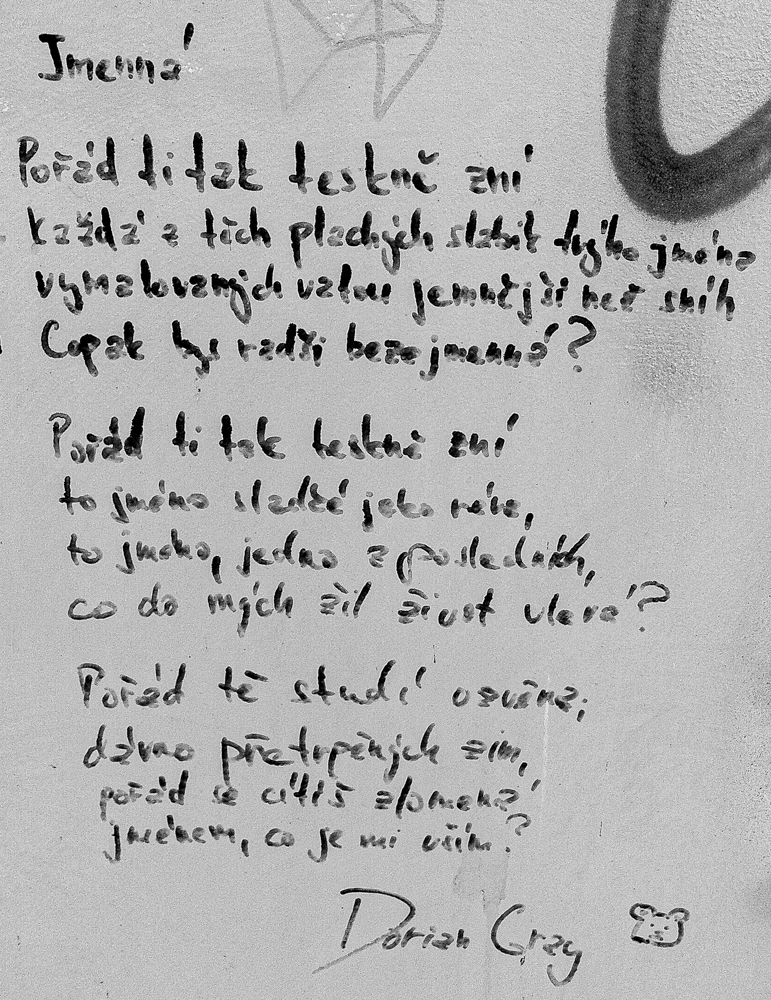 Jmenná
Pořád ti tak teskně zní
každá z těch plachých slabik tvýho jména
vymalovaných vzdou jemnější než sníh
Copak bys radši bezejmenná?
Pořád ti tak teskně zní
to jméno sladké jako réva,
to jméno, jedno z posledních,
co do mých žil život vlévá?
Pořád tě studí ozvěna;
dávno přetrpěných zim,
pořád se cítíš zlomená
jménem, co je mi vším?
Dorian Gray